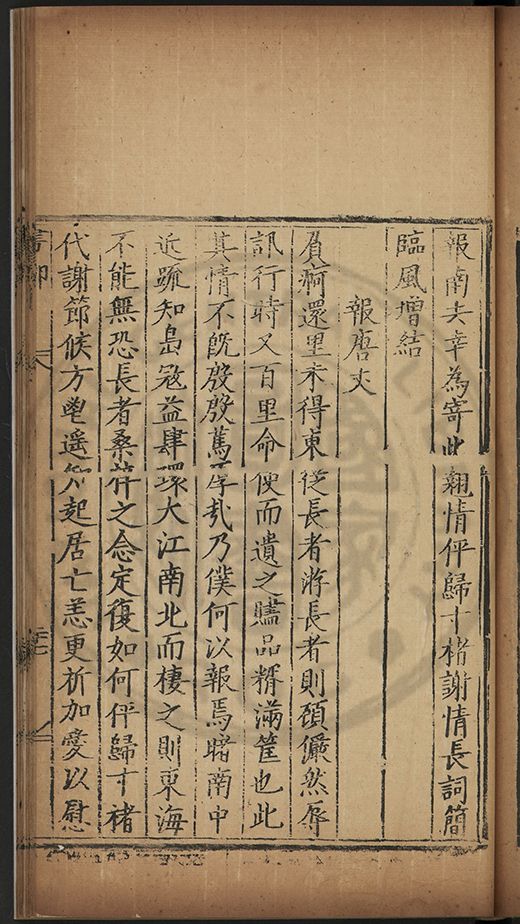 報南夫幸為寄此翹情伻歸寸楮謝情長詞簡
臨風增結
報唐丈
負痾還里未得東從長者游長者則頋儼然辱
訊行時又百里命使而遺之贐品糈滿筐也此
其情不旣殷殷篤厚哉乃僕何以報焉睹南中
近疏知島寇益肆環大江南北而棲之則東海
不能無恐長者桑梓之念定復如何伻歸寸楮
代謝節候方鬯遥起居亡恙更祈加愛以慰